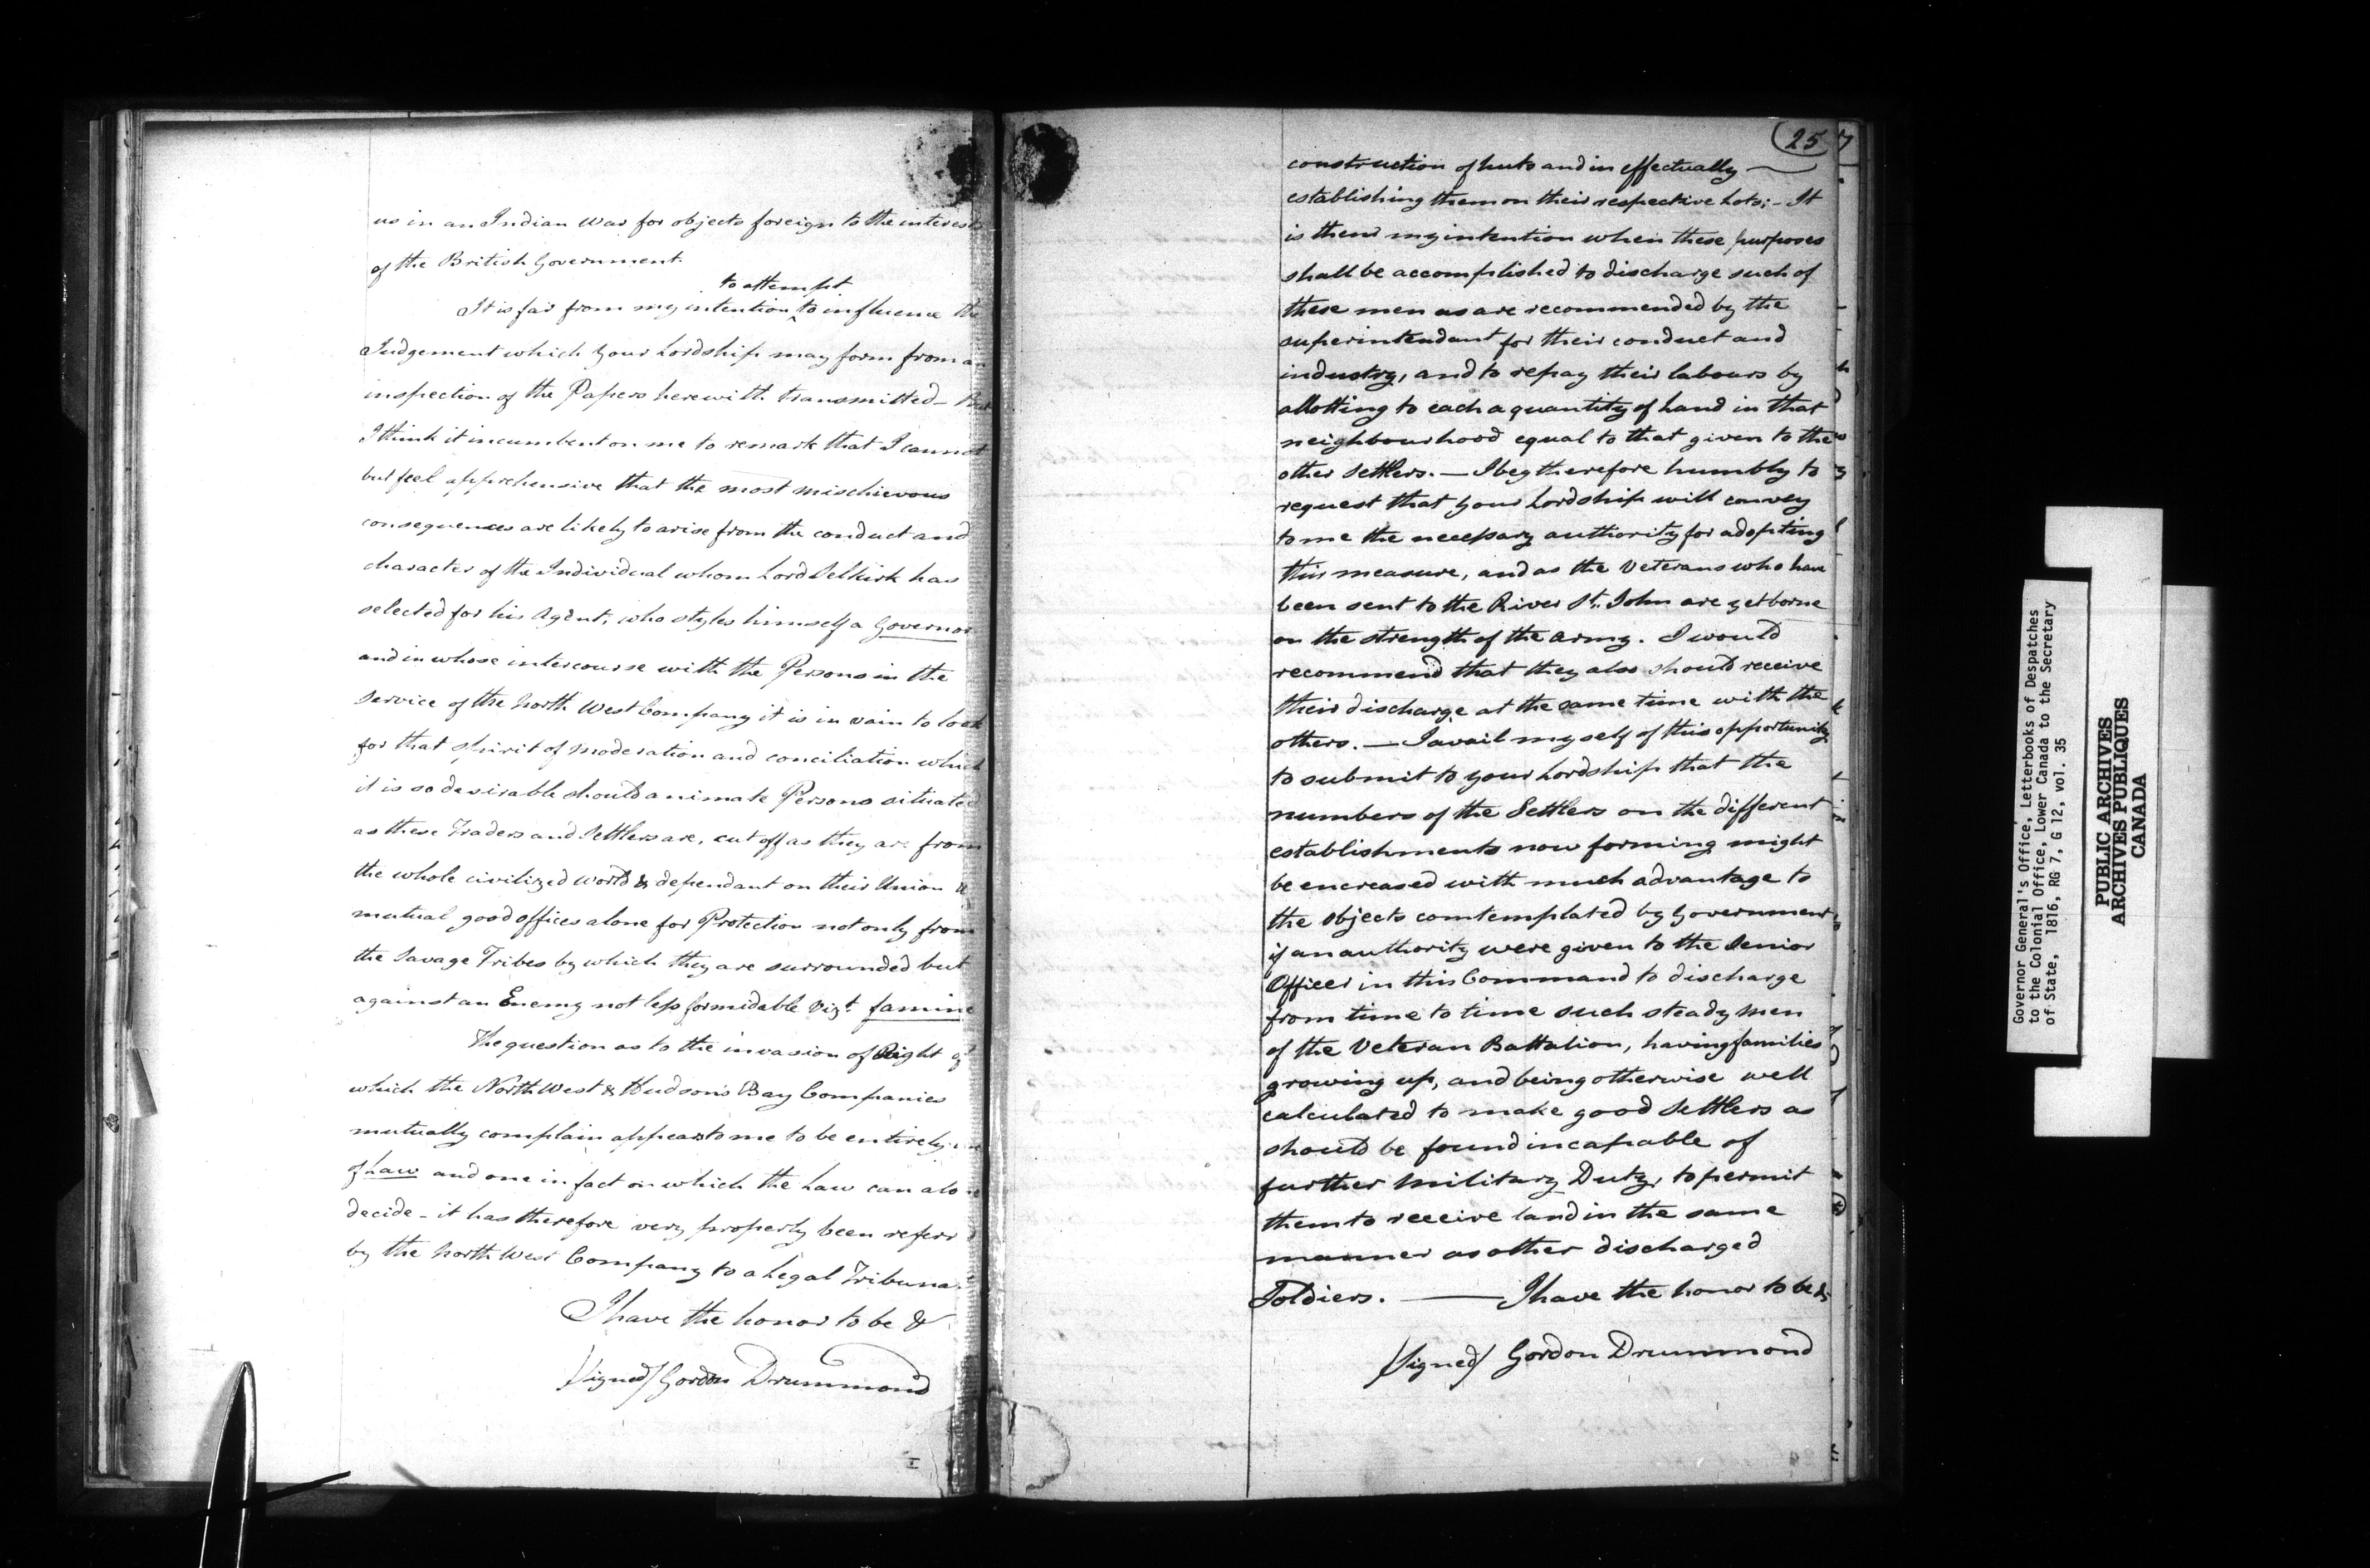 us in an Indian War for objects foreign to the interests
of the British Government.
to attempt
It is far from my intention ^ to influence the
Judgement which Your Lordship may form from an
inspection of the Papers herewith transmitted - But
I think it incumbent on me to remark that I cannot
but feel apprehensive that the most mischievous
consequences are likely to arise from the conduct and
character of the Individual whom Lord Selkirk has
selected for his Agent, who styles himself a Governor
and in whose intercourse with the Persons in the
Service of the North West Company it is in vain to look
for that spirit of moderation and conciliation which
it is so desirable should animate Persons situated
as these Traders and Settlers are, cut off as they are from
the whole civilized world & dependant on their Union &
mutual good offices alone for Protection not only from
the Savage Tribes by which they are surrounded but
against an Enemy not less formidable Vizt. famine
The question as to the invasion of Right of
which the North West & Hudson's Bay Companies
mutually complain appears to me to be entirely one
of Law and one in fact on which the Law can alone
decide - it has therefore very properly been referr'd
by the North West Company to a Legal Tribunal
I have the honor to be &
/Signed/ Gordon Drummond
25
construction of huts and in effectually
establishing them on their respective Lots; - It
is then my intention when these purposes
shall be accomplished to discharge such of
these men as are recommended by the
superintendant for their conduct and
industry, and to repay their labours by
allotting to each a quantity of Land in that
neighbourhood equal to that given to the
other Settlers. — I beg therefore humbly to
request that Your Lordship will convey
to me the necessary authority for adopting
this measure, and as the Veterans who have
been sent to the River St. John are yet borne
on the strength of the Army. I would
recommend that they also should receive
their discharge at the same time with the
others. — I avail myself of this opportunity
to submit to your Lordship that the
numbers of the Settlers on the different
establishments now forming might
be encreased with much advantage to
the objects comtemplated by Government,
if an authority were given to the Senior
Officer in this Command to discharge
from time to time such steady men
of the Veteran Battalion, having families
growing up, and being otherwise well
calculated to make good Settlers as
should be found incapable of
further Military Duty, to permit
them to receive land in the same
manner as other discharged
Soldiers. — I have the honor to be &c
/Signed/ Gordon Drummond
Governor General's Office, Letterbooks of Despatches
to the Colonial Office, Lower Canada to the Secretary
of State, 1816, RG 7, G 12, vol. 35
PUBLIC ARCHIVES
ARCHIVES PUBLIQUES
CANADA